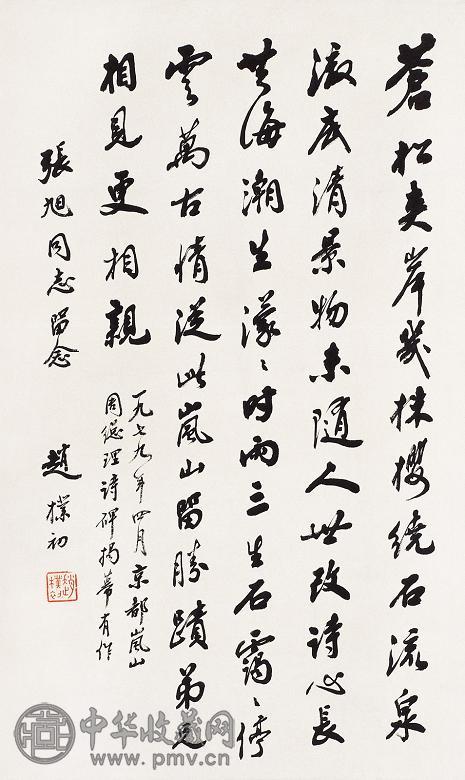 蒼松夾岸幾株櫻繞石流泉
澈底清景物未隨人世改詩心長
共海潮生濛〻時雨三生石靄〻停
雲萬古情從此嵐山留勝蹟弟兄
相見更相親
一九七九年四月京都嵐山
周總理詩碑揭幕有作
張旭同志留念
趙樸初
趙樸初
中华收藏网
www.pmv.cn